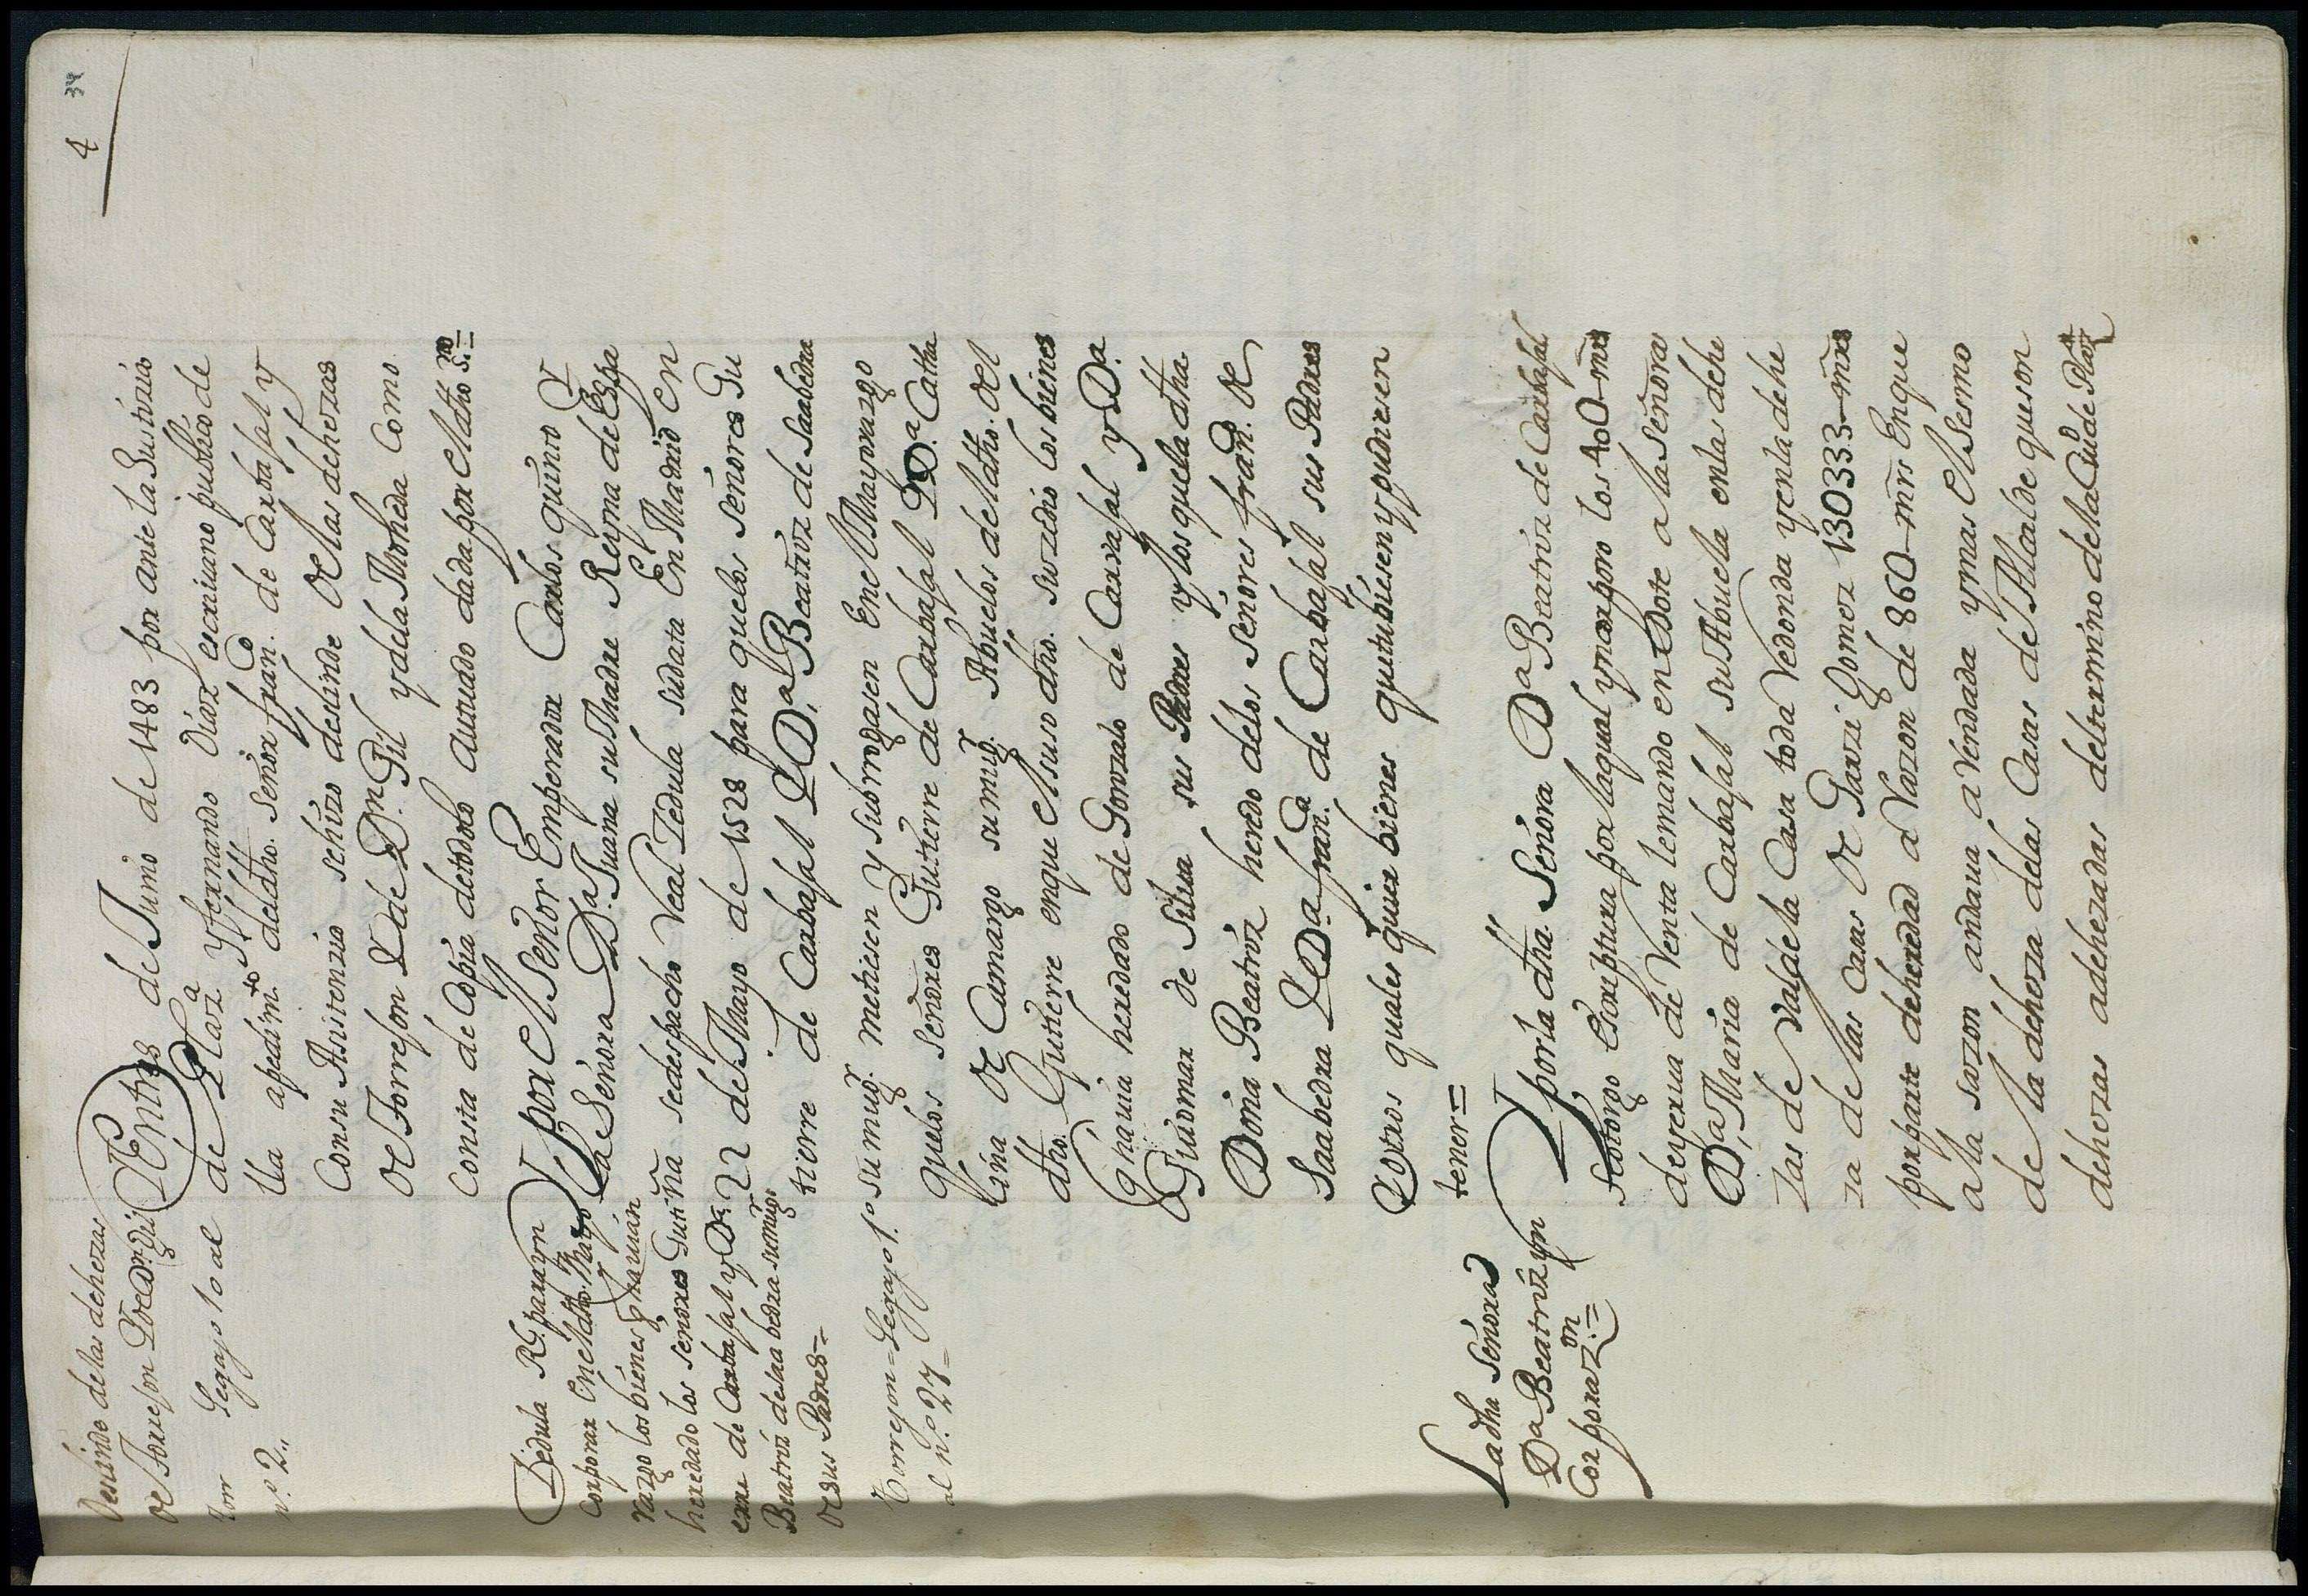 4
34
Deslinde de las dehezas
de Torrejon
Legajo 1o al
n.o 2,,
Y Entres de Junio de 1483 por ante la Justizia
de Plaz.a Yfernando Diaz escriuano publico de
lla apedim.to deldho. señor fran.co de Carbajal y
Consu Asistenzia sehizo deslinde de las dehezas
de Torrejon de D.n Gil ydela Moheda Como
Consta de Copia detodolo autuado dada por el dho S.no=
Zedula Rl. para yn
corporar en el dho. Mayo
razgo los bienes q hauian
heredado los señores Guti
erre de Carbajal y D.a
Beatriz de Saabedra sumugr
de sus Padres=
Torrejon=Legajo 1.o
al n.o 27=
Y por el Señor Emperador Carlos quinto Y
la Señora D.a Juana su Madre Reyna de Espa
ña sedespacho Real Zedula sudata En Madrid En
22 de Mayo de 1528 para quelos señores Gu
tierre de Carbajal Y D.a Beatriz de Saabedra
sumugr. metiesen y subrrogasen En el Mayorazgo
quelos señores Gutierre de Carbajal Y D.a Catha
lina de Camargo sumugr. Abuelos deldho. del
dho. Gutierre enque el suso dho. suzedio los bienes
q hauia heredado de Gonzalo de Carvajal y D.a
Guiomar de Silua sus Padres y los quela dha.
Doña Beatriz heredo delos señores fran.co de
Saabedra Y D.a fran.ca de Carbajal sus Padres
Y otros quales quier bienes quetubiesen y pudiesen
tener=
La dha Señora
D.a Beatriz yn
Corporaz.on=
Y por la dha. Señora D.a Beatriz de Carbajal
se otorgo escriptura por laqual yncorporo los 400 mrs
de yerua de Renta lemando en Dote a la señora
D.a Maria de Carbajal su Abuela enlas dehe
zas de Valdela Casa toda Redonda yenla dehe
za de las Casas de Garzi Gomez 130333 mrs
por parte deheredad a Razon de 860 mrs Enque
a lla sazon andaua a Rendada ymas el sesmo
de la deheza delas Casas de Alcalde que son
dehezas adehezadas deltermino dela Ciu.d de Plaz.a